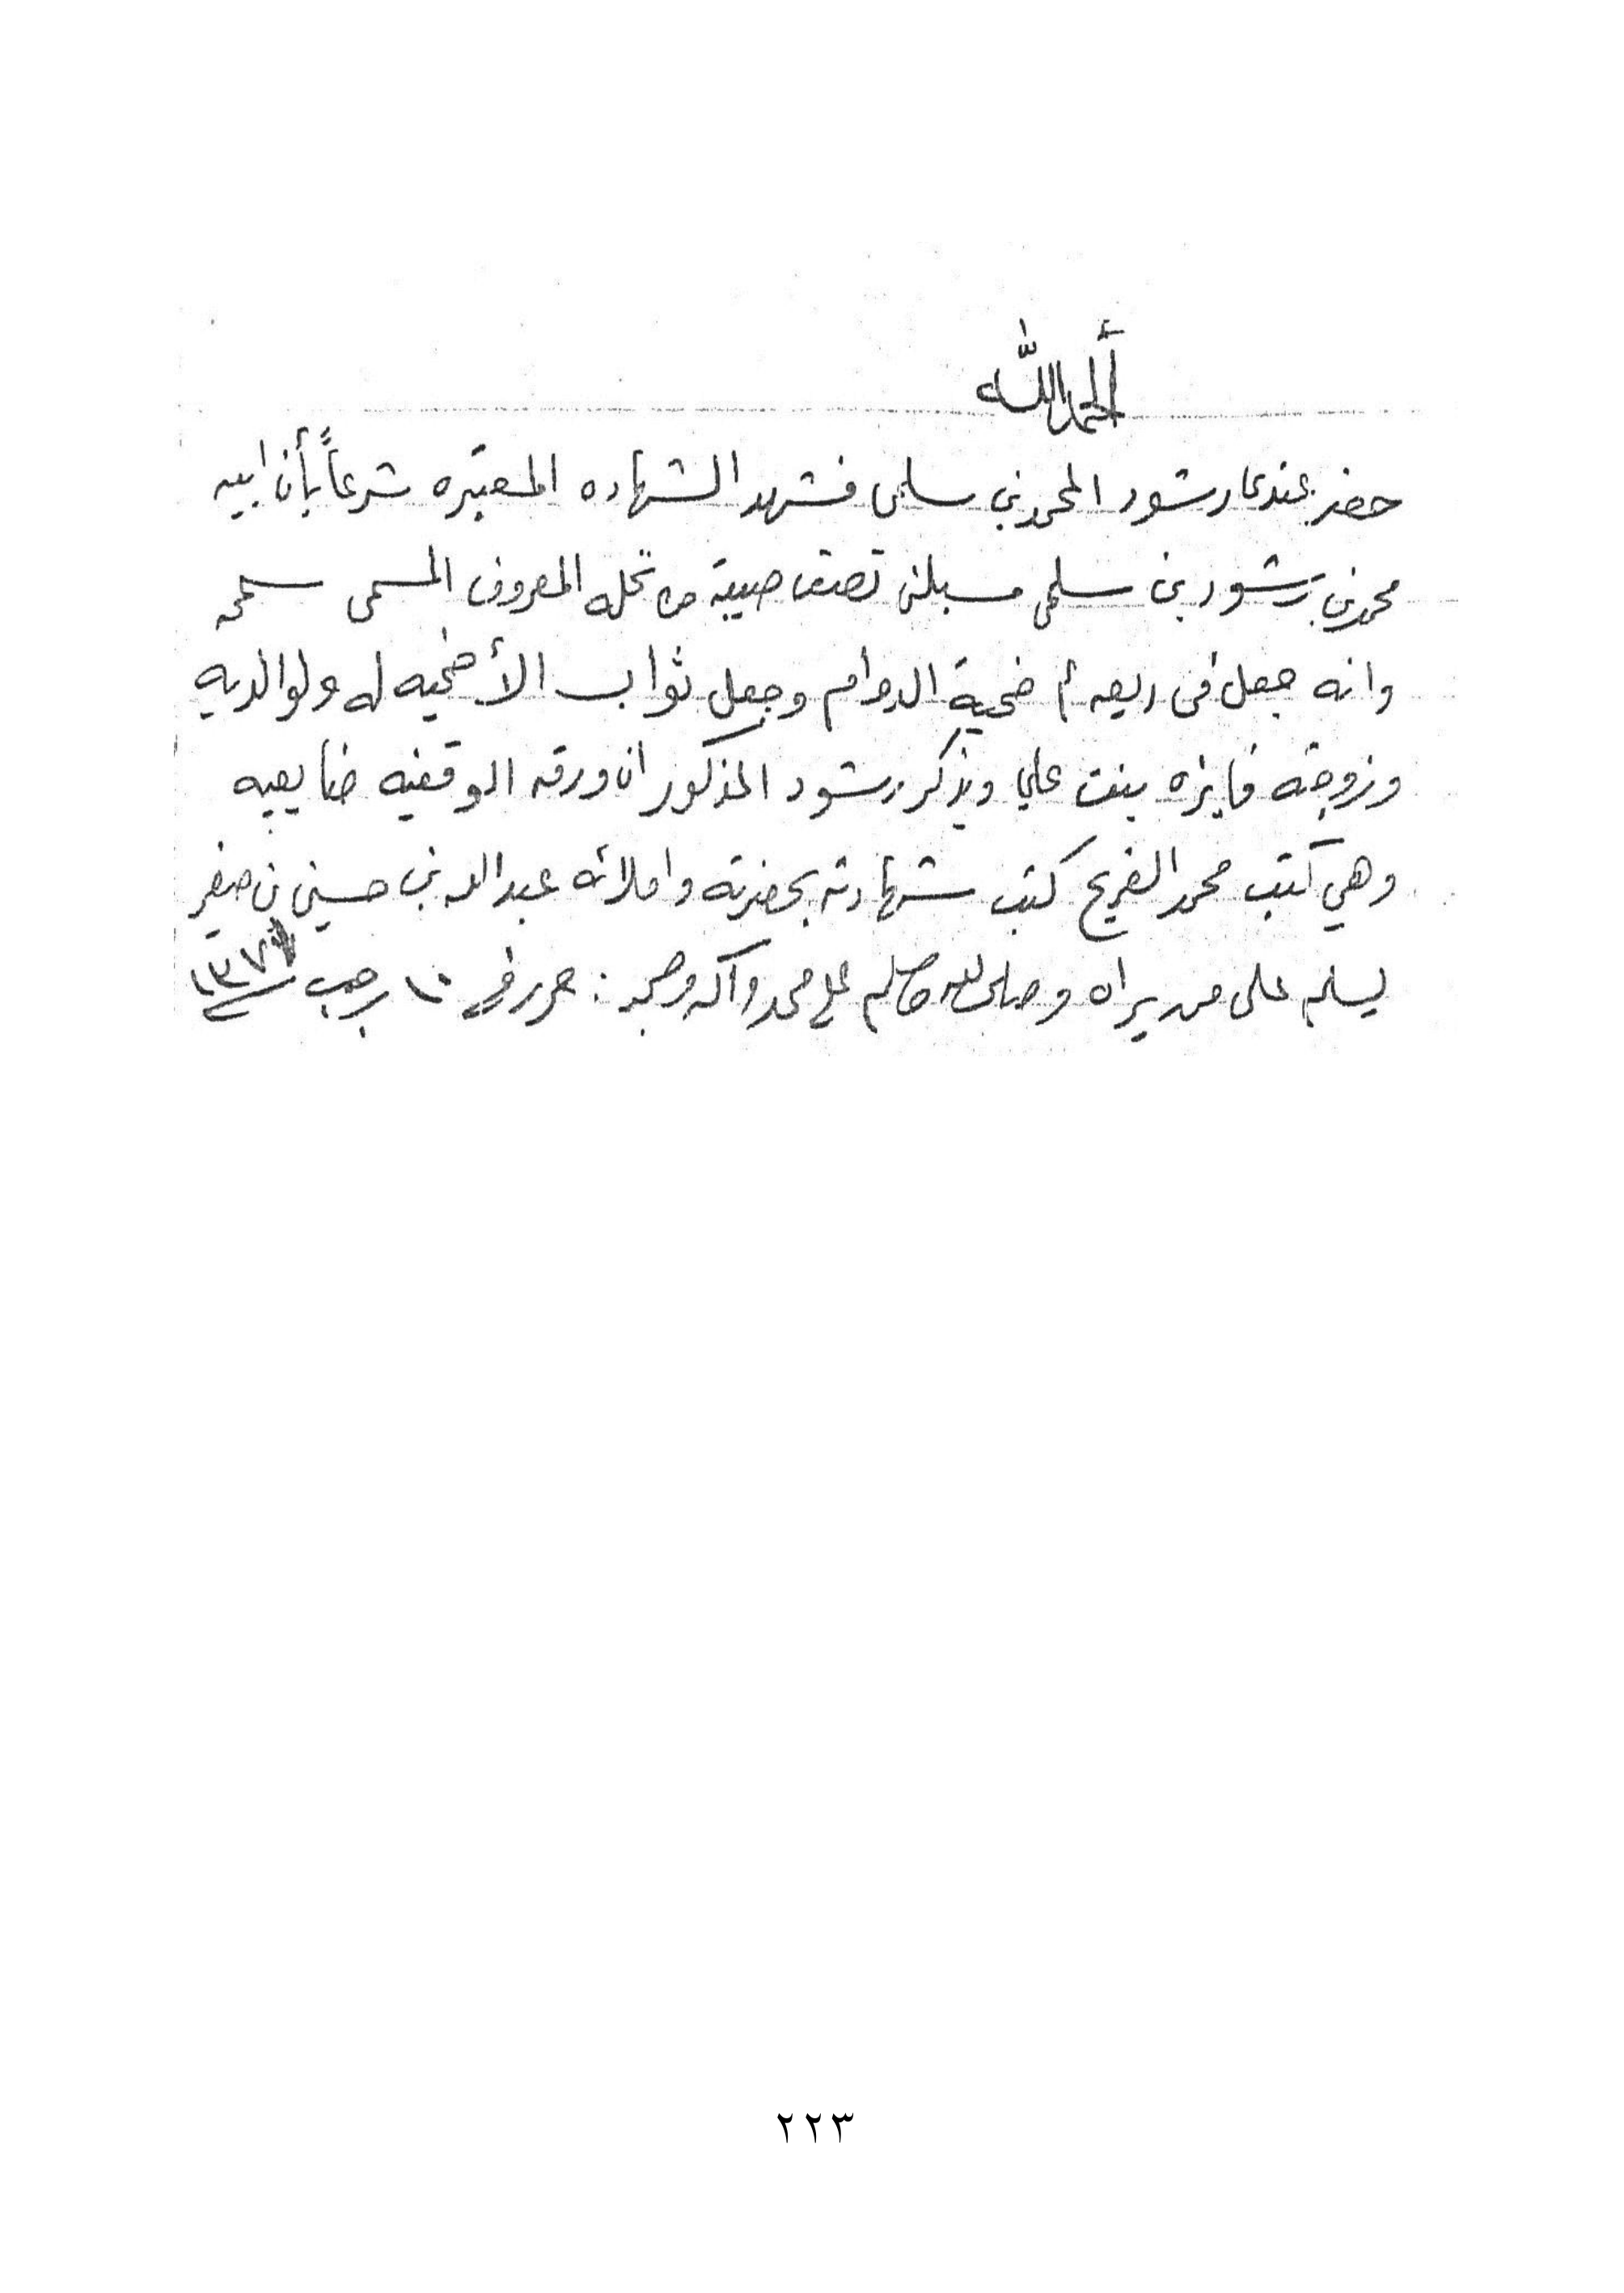 ألحمد لله
حضر عندي رشود المحمد بن سلمى فشهد الشهاده المعتبره شرعاً بأن ابيه
محمد بن رشود بن سلمى مسبلن نصف صيبته من نخله المعروف المسمى سمحه
وانه جعل في ريعه أضحية الدوام وجعل ثواب الأضحيه له ولوالديه
وزوجته فايزه بنت علي ويذكر رشود المذكور ان ورقه الوقفيه ضايعيه
وهي كتب محمد الفريح كتب شهادته بحضرته واملائه عبدالله بن حسين بن صقر
يسلم على من يراه وصلى الله وسلم على محمد وآله وصحبه : حرر في ١٠ رجب
٢٢٣